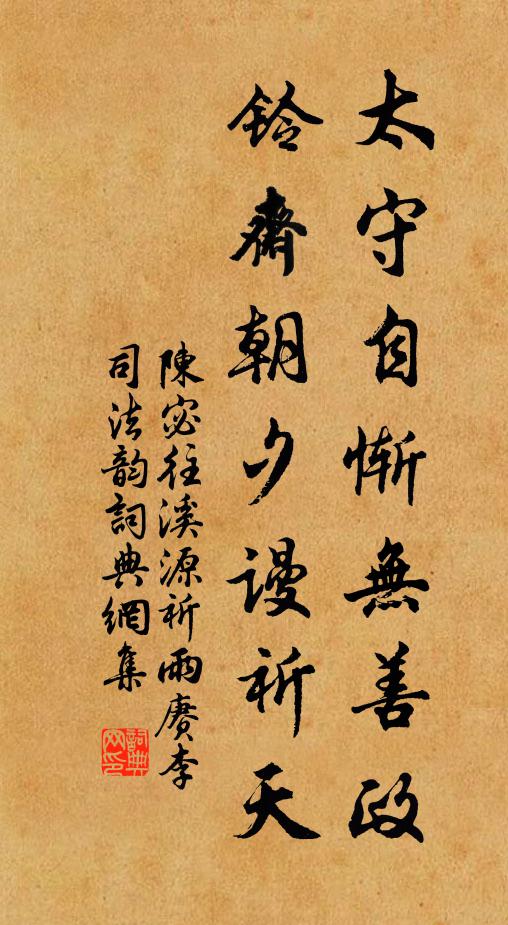 太守自慚無善政
鈴齋朝夕謾祈天
陳宓往溪源祈雨賡李
司法韵詞典網集
詞典
网印